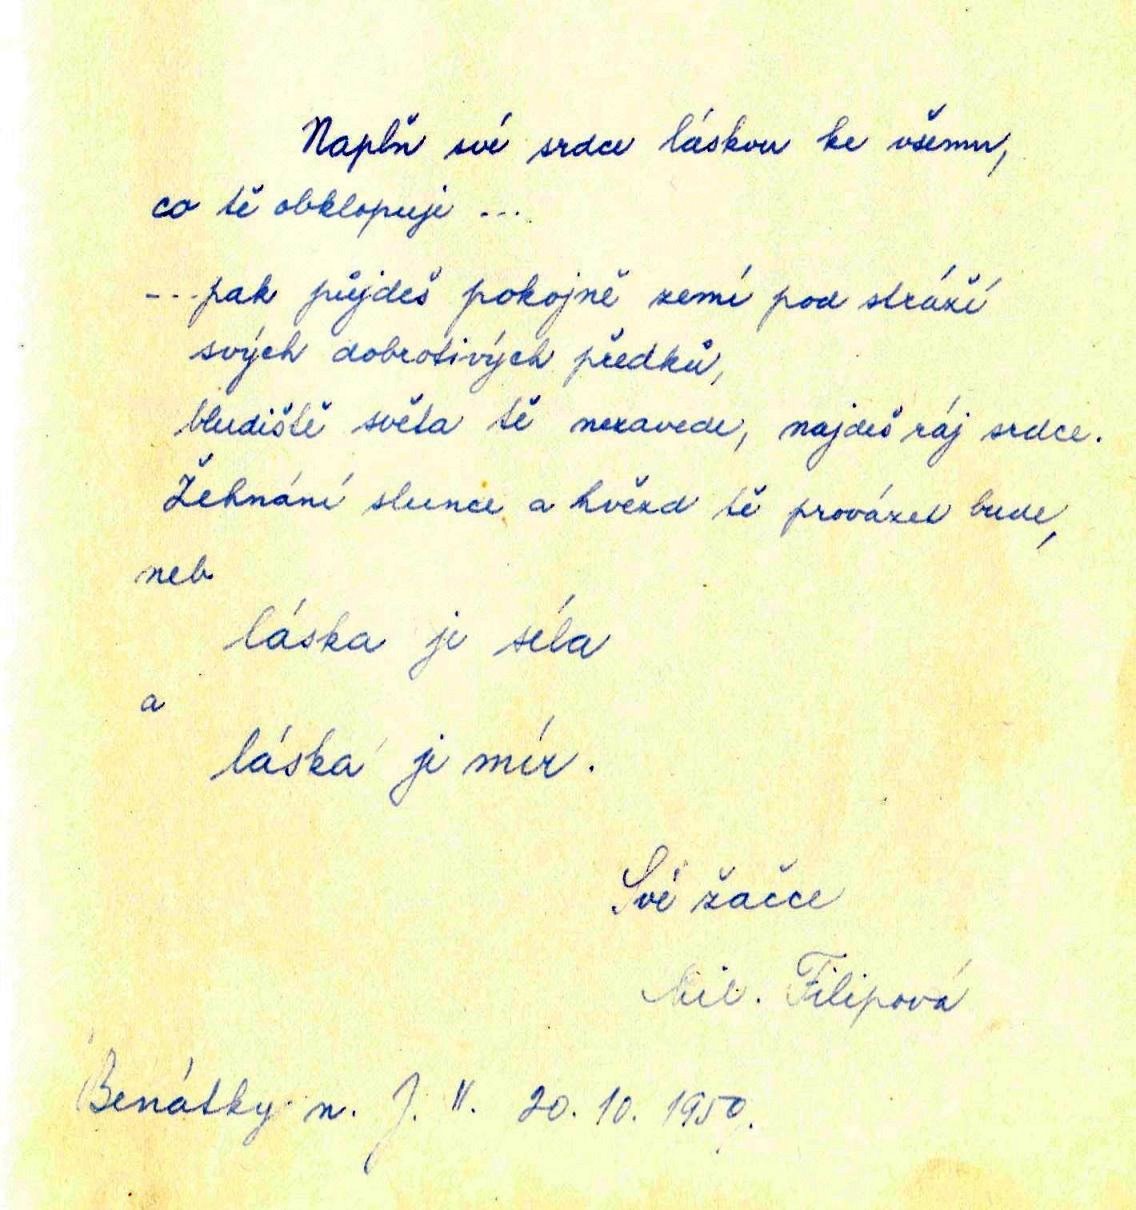 Naplň své srdce láskou ke všemu,
co tě obklopuje ...
...pak půjdeš pokojně zemí pod stráží
svých dobrotivých předků,
bludiště světa tě nezavede, najdeš ráj srdce.
Žehnání slunce a hvězd tě provázet bude,
neb
láska je síla
a
láska je mír.
Své žačce
Mil. Filipová
Benátky n. J. II. 20. 10. 1950.